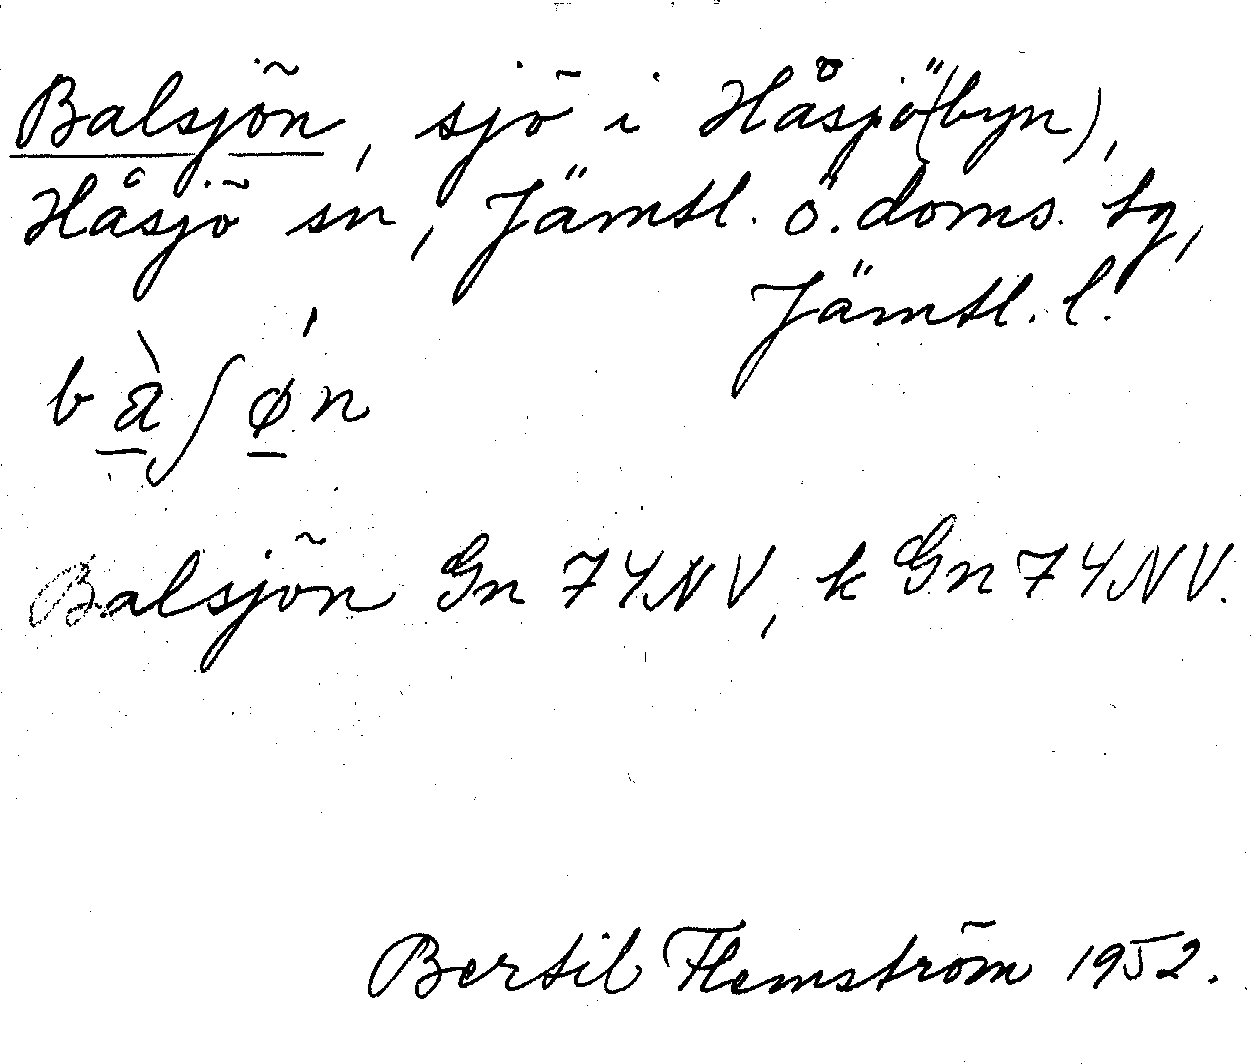 Balsjön, sjö i Håsjö (byn),
Håsjö sn, Jämtl. ö. doms. tg,
Jämtl. l.
bàʃøn
Balsjön Gn 74NV, k Gn 74NV.
Bertil Flemström 1952.